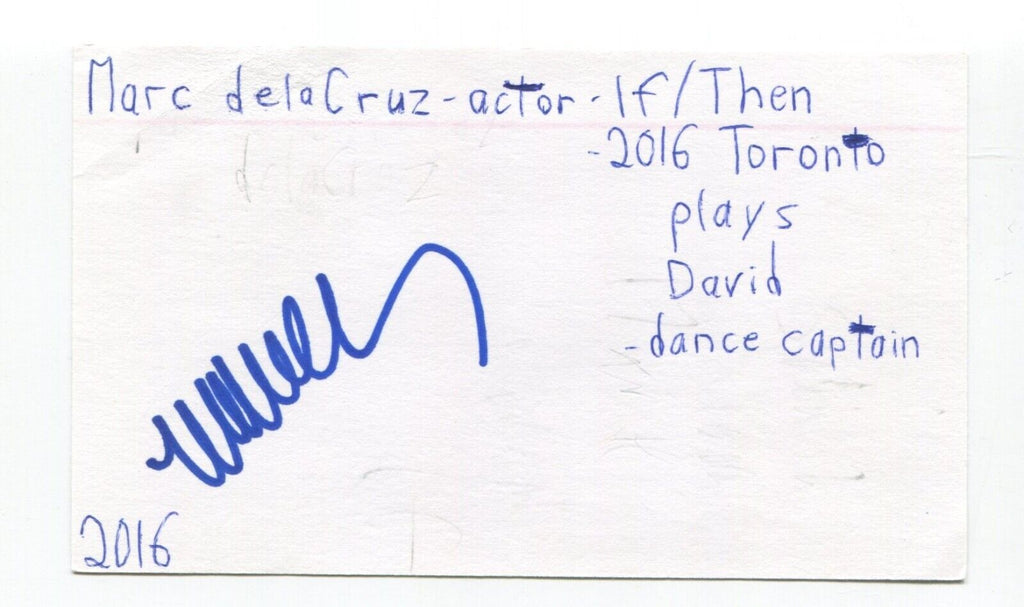 Marc delaCruz - actor - If/Then
- 2016 Toronto
plays
David
- dance captain
delaCruz
2016